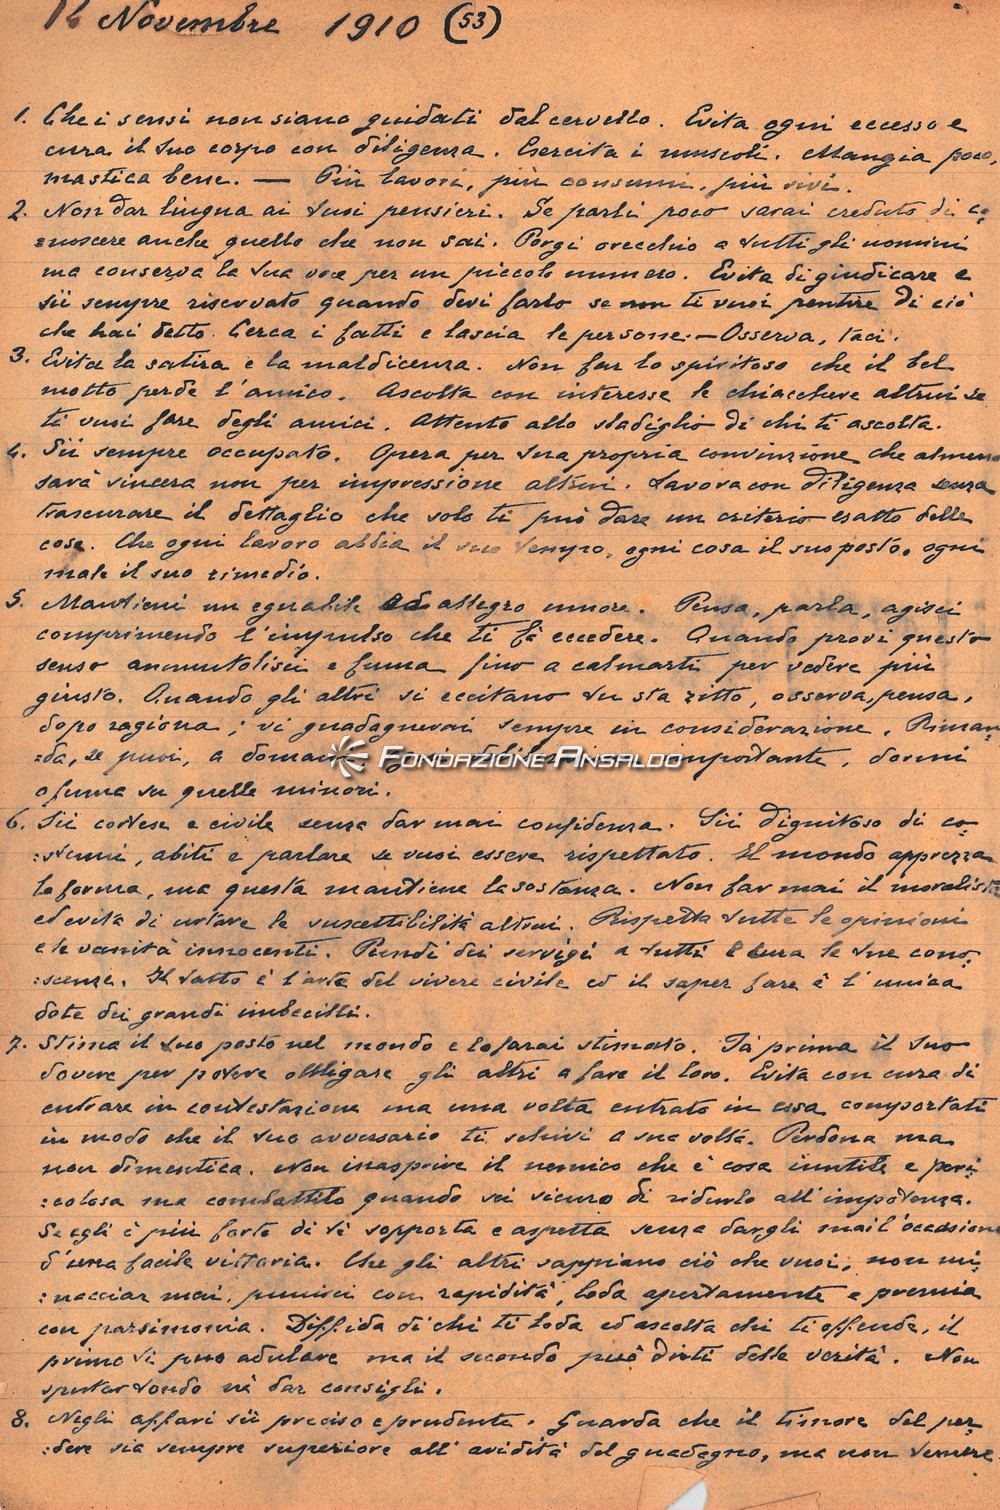 12 Novembre 1910 (53)
1. Che i sensi non siano guidati dal cervello. Evita ogni eccesso e
cura il tuo corpo con diligenza. Esercita i muscoli. Mangia poco,
mastica bene. — Più lavori, più consumi, più vivi.
2. Non dar lingua ai tuoi pensieri. Se parli poco sarai creduto di co=
=noscere anche quello che non sai. Porgi orecchio a tutti gli uomini
ma conserva la tua voce per un piccolo numero. Evita di giudicare e
sii sempre riservato quando devi farlo se non ti vuoi pentire di ciò
che hai detto. Cerca i fatti e lascia le persone. — Osserva, taci.
3. Evita la satira e la maldicenza. Non far lo spiritoso che il bel
motto perde l'amico. Ascolta con interesse le chiacchere altrui se
ti vuoi fare degli amici. Attento allo sbadiglio di chi ti ascolta.
4. Sii sempre occupato. Opera per tua propria convinzione che almeno
sarà sincera non per impressione altrui. Lavora con diligenza senza
trascurare il dettaglio che solo ti può dare un criterio esatto delle
cose. Che ogni lavoro abbia il suo tempo, ogni cosa il suo posto, ogni
male il suo rimedio.
5. Mantieni un eguabile ed allegro umore. Pensa, parla, agisci
comprimendo l'impulso che ti fà eccedere. Quando provi questo
senso ammutolisci e fuma fino a calmarti per vedere più
giusto. Quando gli altri si eccitano tu sta zitto, osserva, pensa,
dopo ragiona; vi guadagnerai sempre in considerazione. Riman=
=da, se puoi, a domani ogni importante, dormi
FONDAZIONE ANSALDO
o fuma su quelle minori.
6. Sii cortese e civile senza dar mai confidenza. Sii dignitoso di co=
=stumi, abiti e parlare se vuoi essere rispettato. Il mondo apprezza
la forma, ma questa mantiene la sostanza. Non far mai il moralista
ed evita di urtare le suscettibilità altrui. Rispetta tutte le opinioni
e le vanità innocenti. Rendi dei servigi a tutti e cura le tue cono=
=scenze. Il tatto è l'arte del vivere civile ed il saper fare è l'unica
dote dei grandi imbecilli.
7. Stima il tuo posto nel mondo e lo farai stimato. Fà prima il tuo
dovere per potere obbligare gli altri a fare il loro. Evita con cura di
entrare in contestazione ma una volta entrato in essa comportati
in modo che il tuo avversario ti schivi a sua volta. Perdona ma
non dimentica. Non inasprire il nemico che è cosa inutile e peri=
=colosa ma combattilo quando sei sicuro di ridurlo all'impotenza.
Se egli è più forte di tè sopporta e aspetta senza dargli mai l'occasione
d'una facile vittoria. Che gli altri sappiano ciò che vuoi, non mi=
=nacciar mai, punisci con rapidità, loda apertamente e premia
con parsimonia. Diffida di chi ti loda ed ascolta chi ti offende, il
primo ti può adulare ma il secondo può dirti delle verità. Non
sputar tondo nè dar consigli.
8. Negli affari sii preciso e prudente. Guarda che il timore del per=
=dere sia sempre superiore all'avidità del guadagno, ma non temere